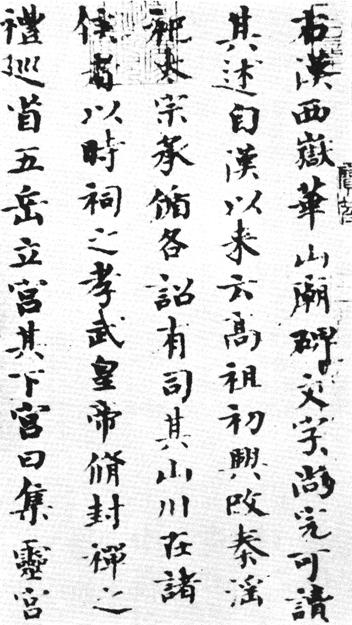 右漢西嶽華山廟碑文字尚完可讀
其述自漢以来云高祖初興改秦淫
祀太宗承循各詔有司其山川在諸
侯者以時祠之孝武皇帝脩封禪之
禮巡省五岳立宮其下宮曰集靈宮